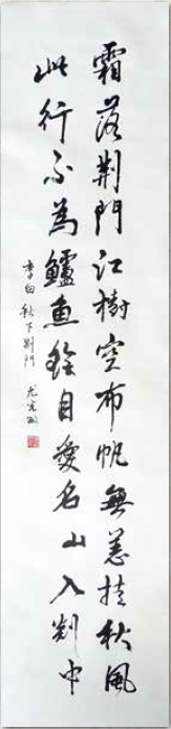 霜落荊門江樹空布帆無恙挂秋風
此行不為鱸魚鱠自愛名山入剡中
李白 秋下荊門